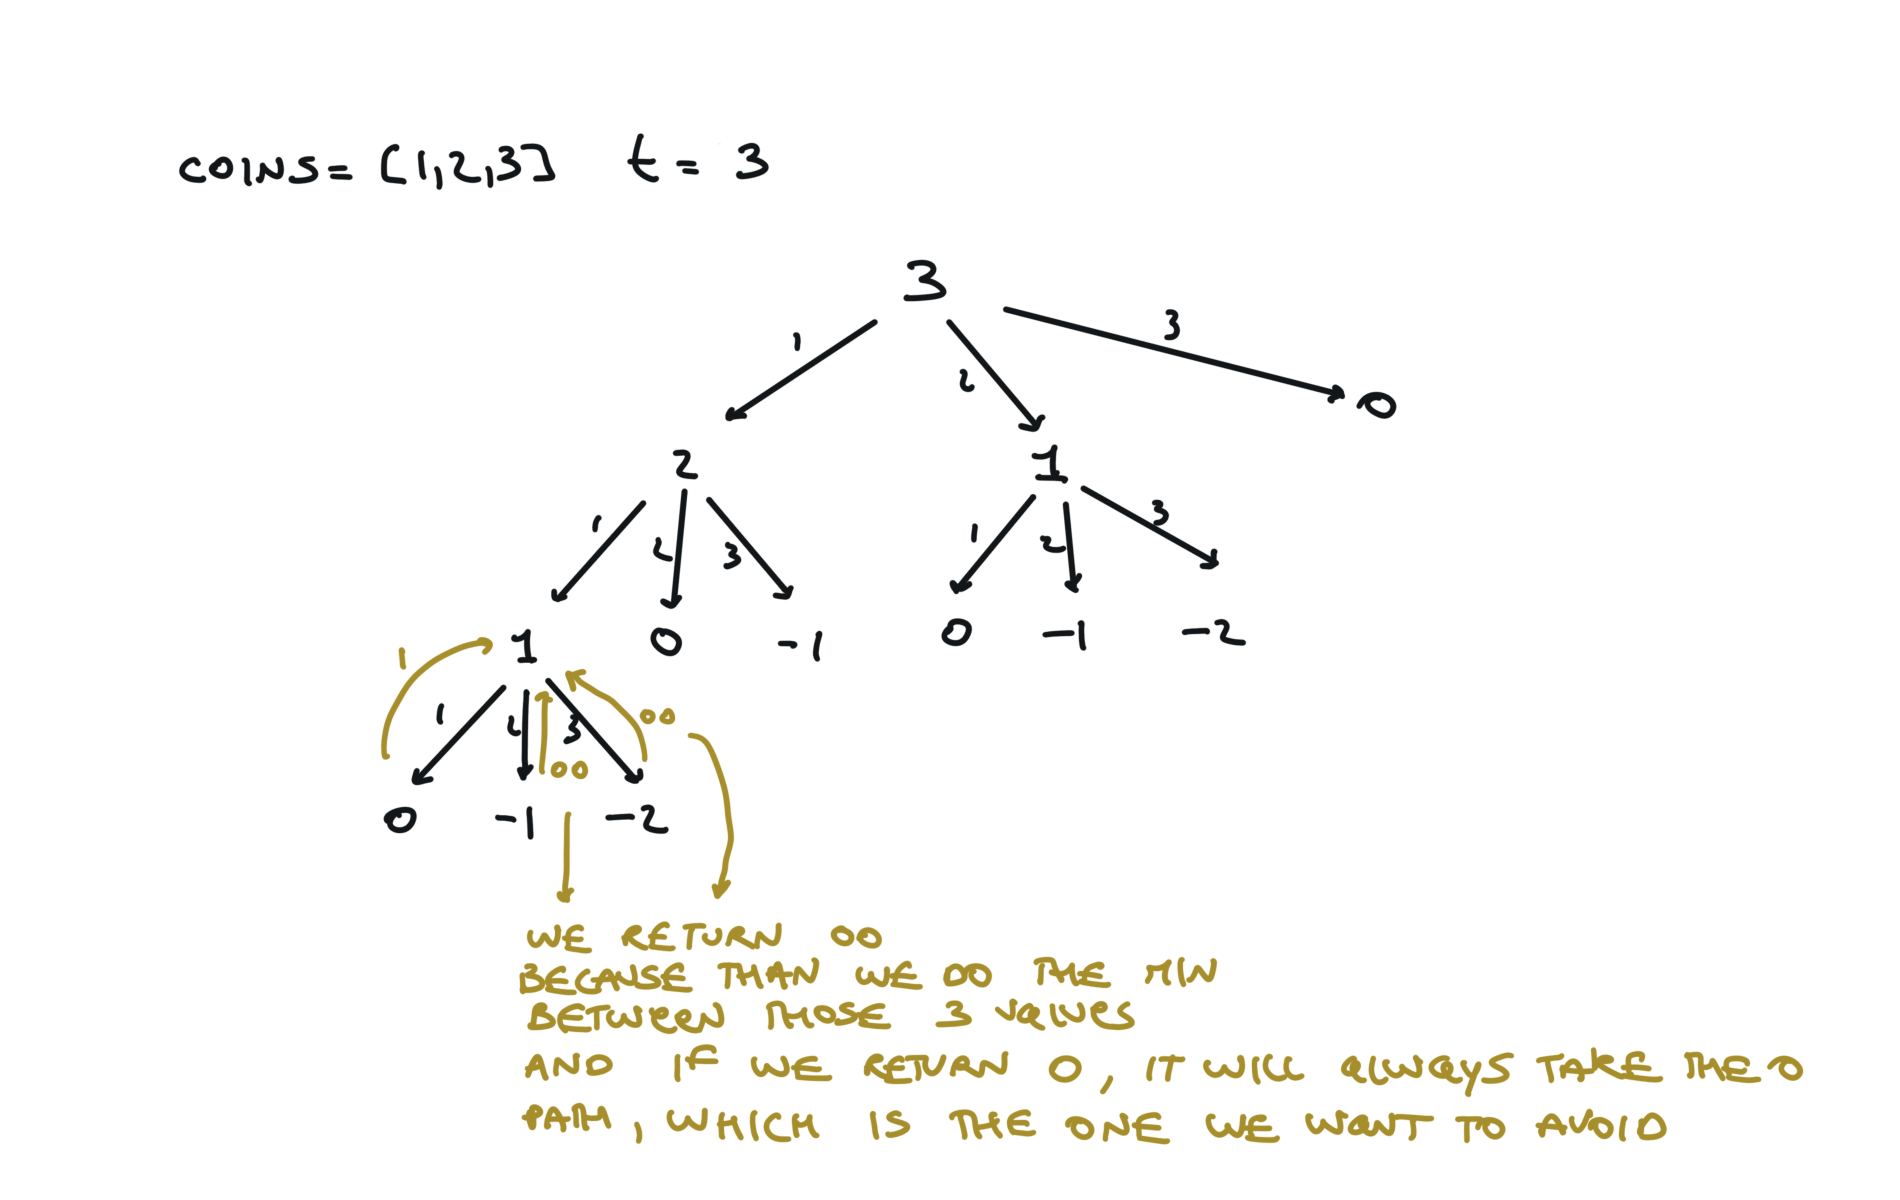 COINS= [1,2,3] t = 3
3
1 2 3
0
2 1
1 2 3 1 2 3
1 0 -1 0 -1 -2
1
1 2 3 ∞
∞
0 -1 -2
WE RETURN ∞
BECAUSE THAN WE DO THE MIN
BETWEEN THOSE 3 VALUES
AND IF WE RETURN 0, IT WILL ALWAYS TAKE THE 0
PATH, WHICH IS THE ONE WE WANT TO AVOID